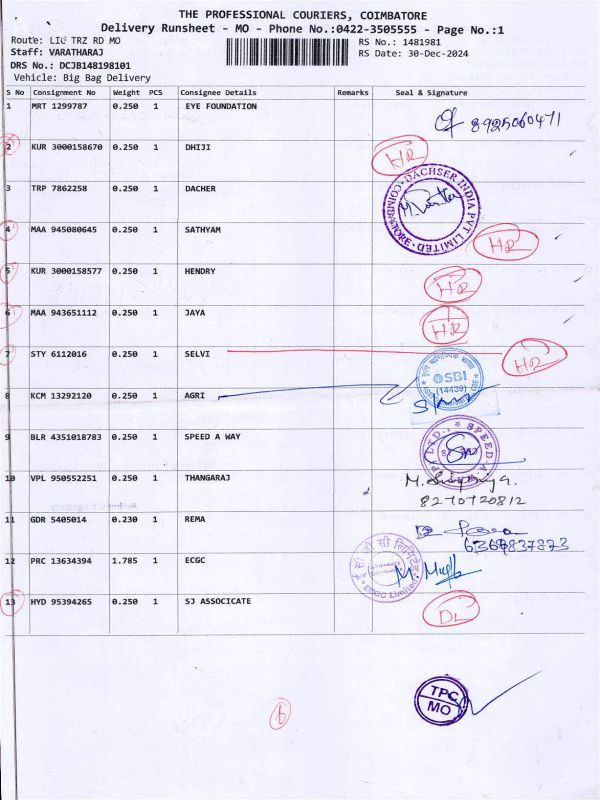 THE PROFESSIONAL COURIERS, COIMBATORE
Delivery Runsheet - MO - Phone No.:0422-3505555 - Page No.:1
Route: LIC TRZ RD MO
RS No.: 1481981
Staff: VARATHARAJ
RS Date: 30-Dec-2024
DRS No.: DCJB148198101
Vehicle: Big Bag Delivery
S No Consignment No Weight PCS Consignee Details Remarks Seal & Signature
1 MRT 1299787 0.250 1 EYE FOUNDATION 8925060471
2 KUR 3000158670 0.250 1 DHIJI HR
3 TRP 7862258 0.250 1 DACHER DACHSER INDIA PVT LIMITED COIMBATORE
4 MAA 945080645 0.250 1 SATHYAM HR
5 KUR 3000158577 0.250 1 HENDRY HR
6 MAA 943651112 0.250 1 JAYA HR
7 STY 6112016 0.250 1 SELVI HR
8 KCM 13292120 0.250 1 AGRI SBI (14439)
9 BLR 4351018783 0.250 1 SPEED A WAY SPEED-A-WAY (P) LTD.,
10 VPL 950552251 0.250 1 THANGARAJ M. 8270720812
11 GDR 5405014 0.230 1 REMA 6369837873
12 PRC 13634394 1.785 1 ECGC ECGC Limited
13 HYD 95394265 0.250 1 SJ ASSOCICATE DL
TPC
MO
6